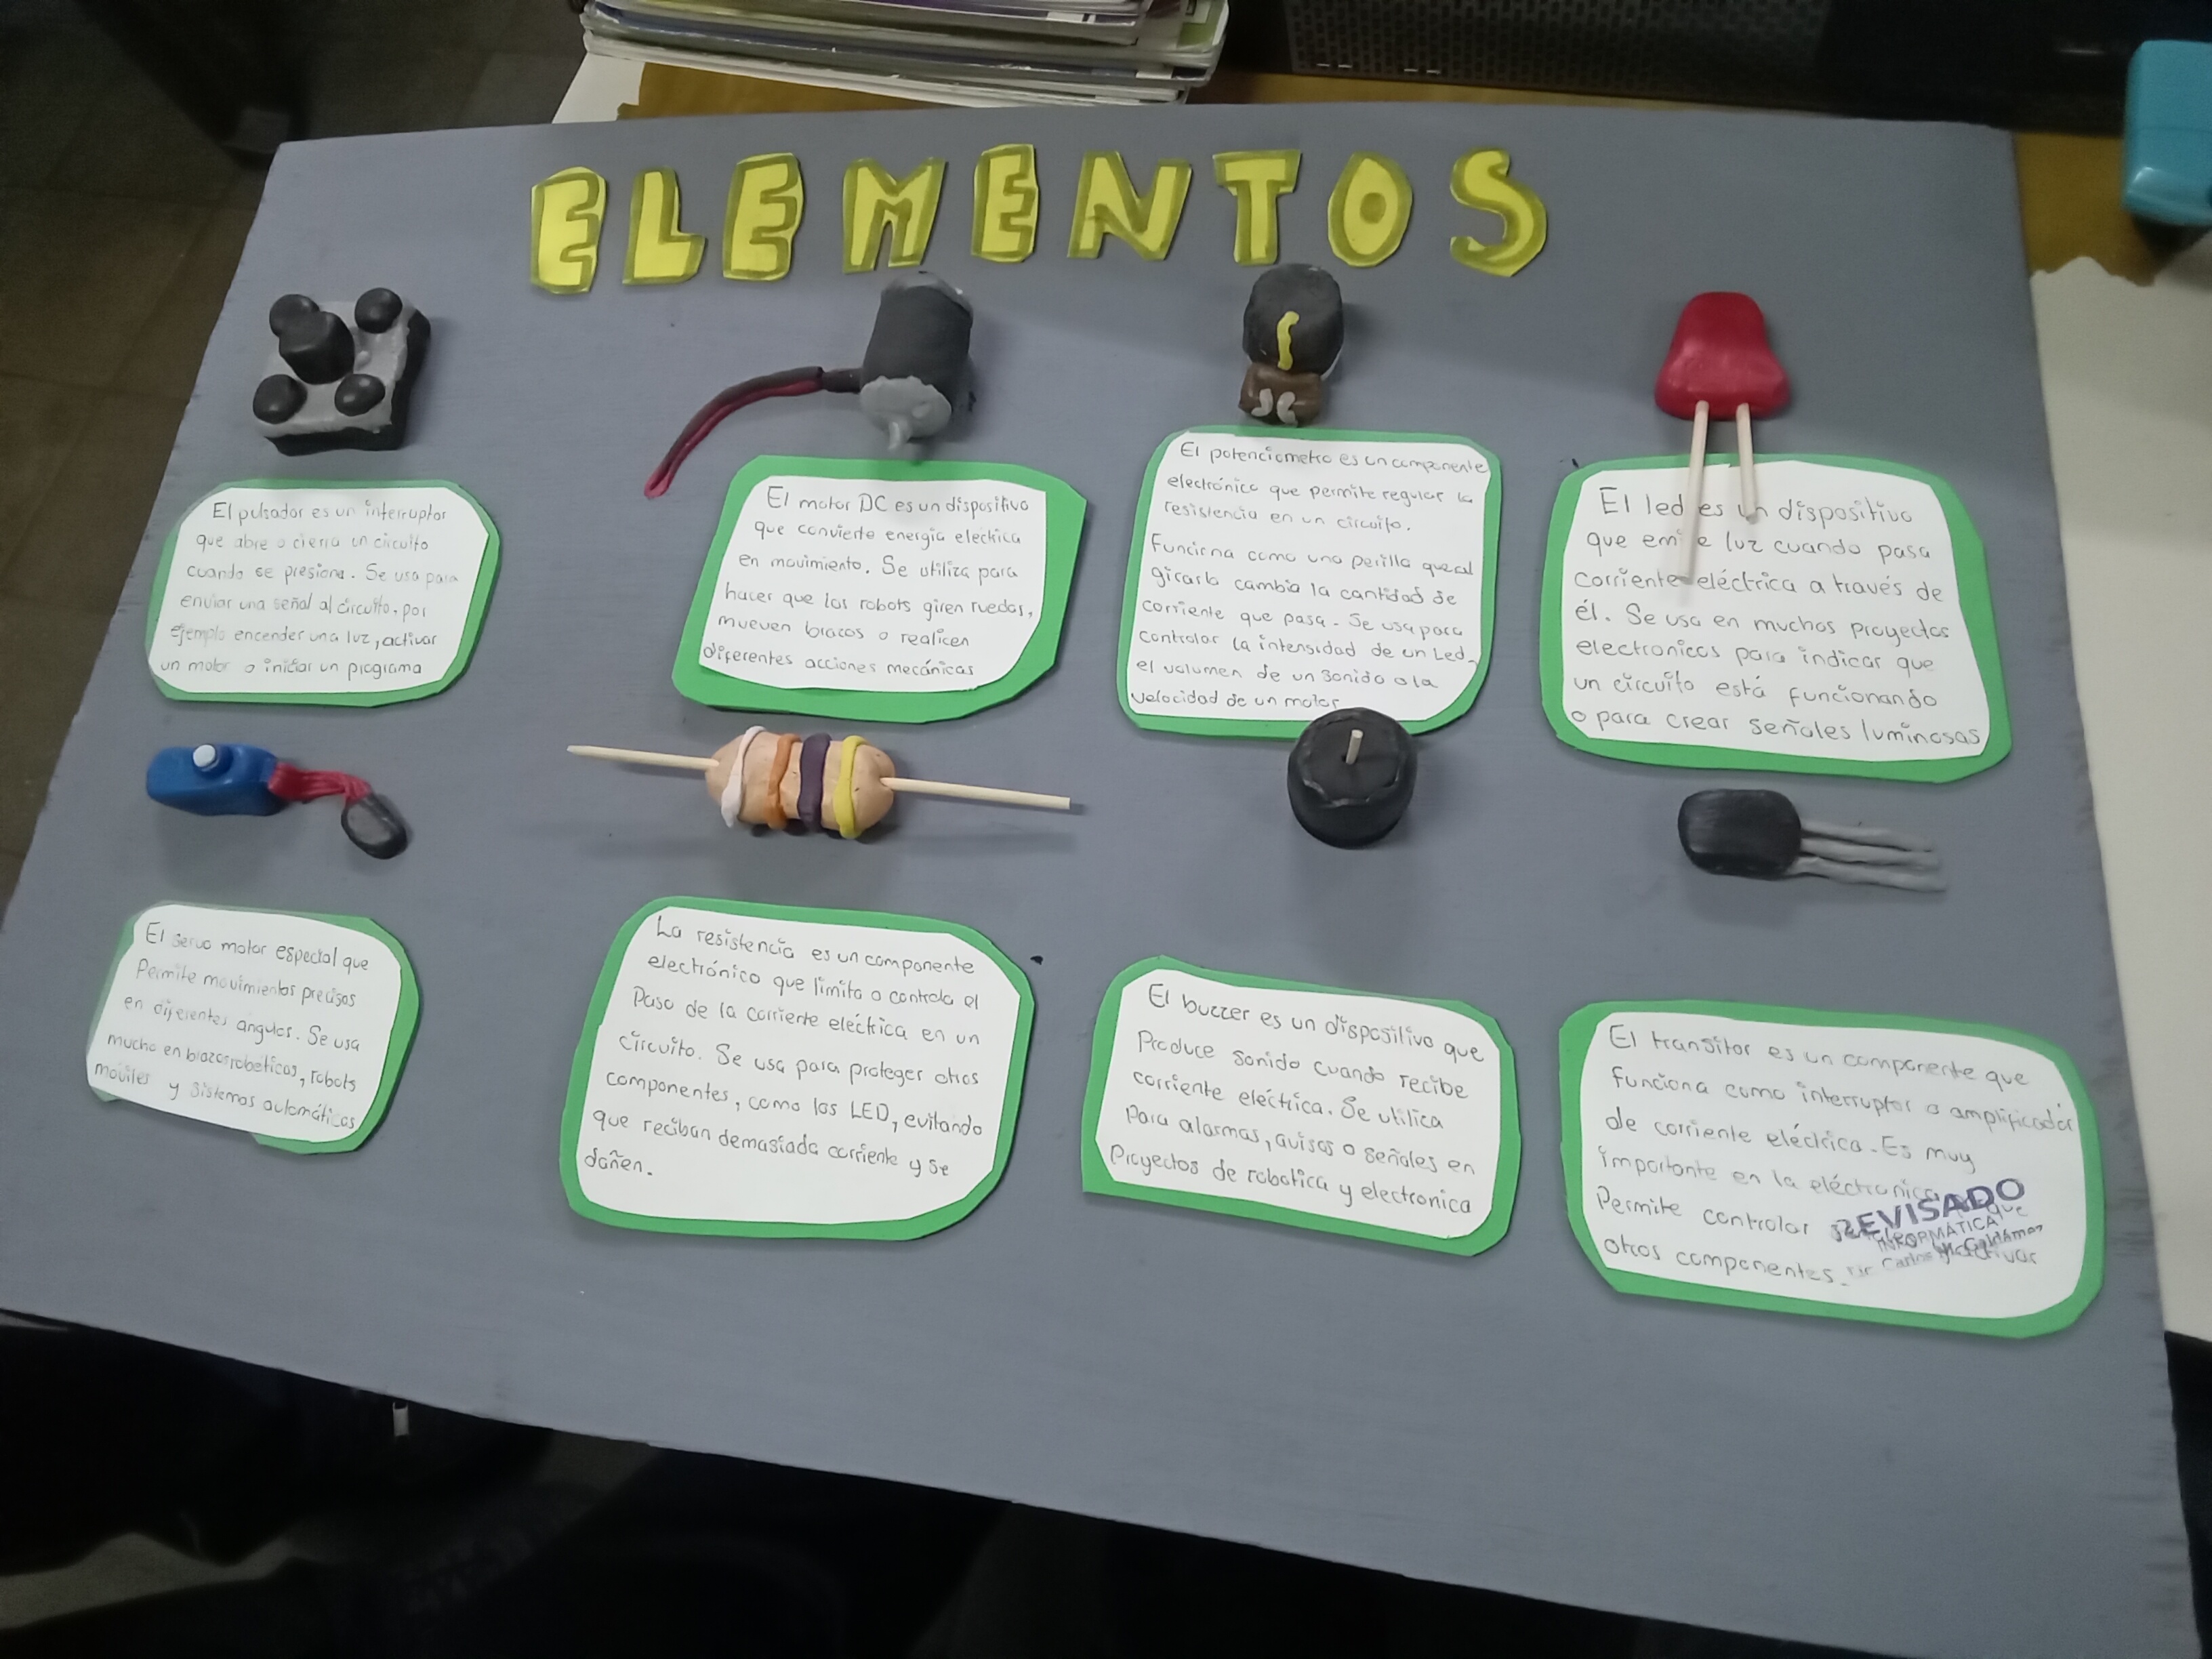 ELEMENTOS
El pulsador es un interruptor
que abre o cierra un circuito
cuando se presiona. Se usa para
enviar una señal al circuito, por
ejemplo encender una luz, activar
un motor o iniciar un programa
El motor DC es un dispositivo
que convierte energia electrica
en movimiento. Se utiliza para
hacer que los robots giren ruedas,
mueven brazos o realicen
diferentes acciones mecánicas
El potenciometro es un componente
electrónico que permite regular la
resistencia en un circuito.
Funciona como una perilla que al
girarla cambia la cantidad de
corriente que pasa. Se usa para
controlar la intensidad de un Led,
el volumen de un sonido o la
velocidad de un motor
El led es un dispositivo
que emite luz cuando pasa
corriente eléctrica a través de
él. Se usa en muchos proyectos
electronicos para indicar que
un circuito está funcionando
o para crear señales luminosas
El servo motor especial que
Permite movimientos precisos
en diferentes angulos. Se usa
mucho en brazos roboticas, robots
moviles y sistemas automáticas
La resistencia es un componente
electrónico que limita o controla el
Paso de la corriente eléctrica en un
circuito. Se usa para proteger otros
componentes, como los LED, evitando
que reciban demasiada corriente y se
dañen.
El buzzer es un dispositivo que
Produce sonido cuando recibe
corriente eléctrica. Se utilica
Para alarmas, avisos o señales en
Proyectos de robotica y electronica
El transitor es un componente que
funciona como interruptor o amplificador
de corriente eléctrica. Es muy
importante en la eléctronica que
Permite controlar
otros componentes.
REVISADO
INFORMÁTICA
Lic. Carlos Galdámez